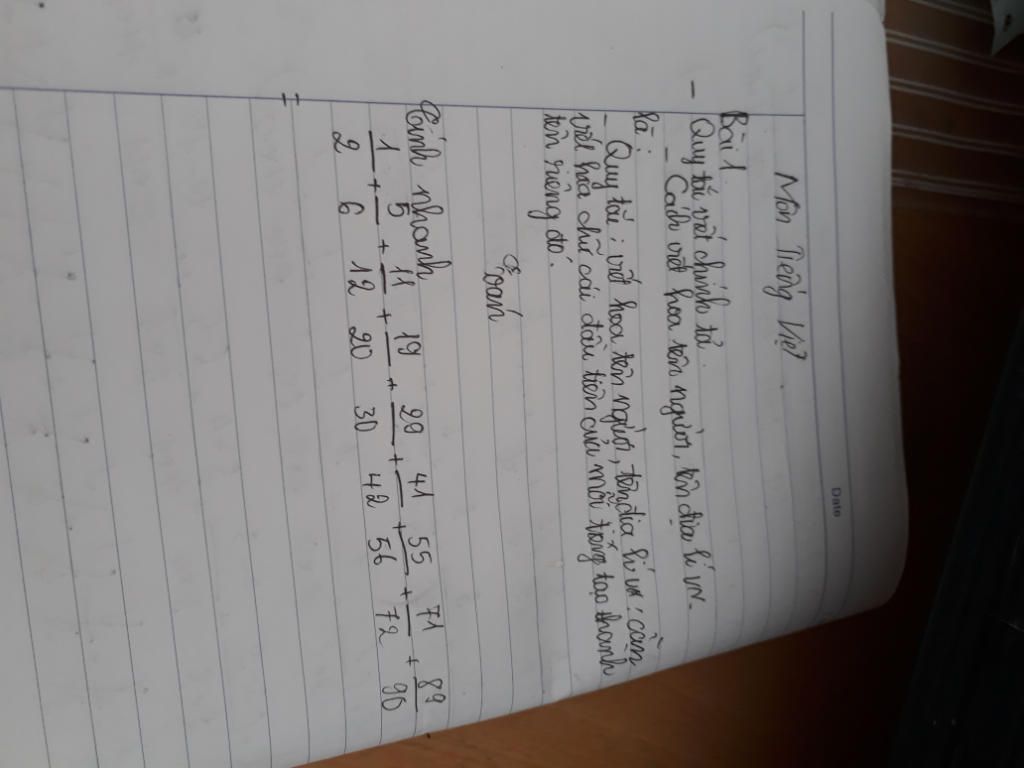 Date
Môn Tiếng Việt
Bài 1.
- Quy tắc viết chính tả.
- Cách viết hoa tên người, tên địa lí VN.
là:
- Quy tắc: viết hoa tên người, tên địa lí VN: cần
viết hoa chữ cái đầu tiên của mỗi tiếng tạo thành
tên riêng đó.
Toán
Tính nhanh
1/2 + 5/6 + 11/12 + 19/20 + 29/30 + 41/42 + 55/56 + 71/72 + 89/90
=